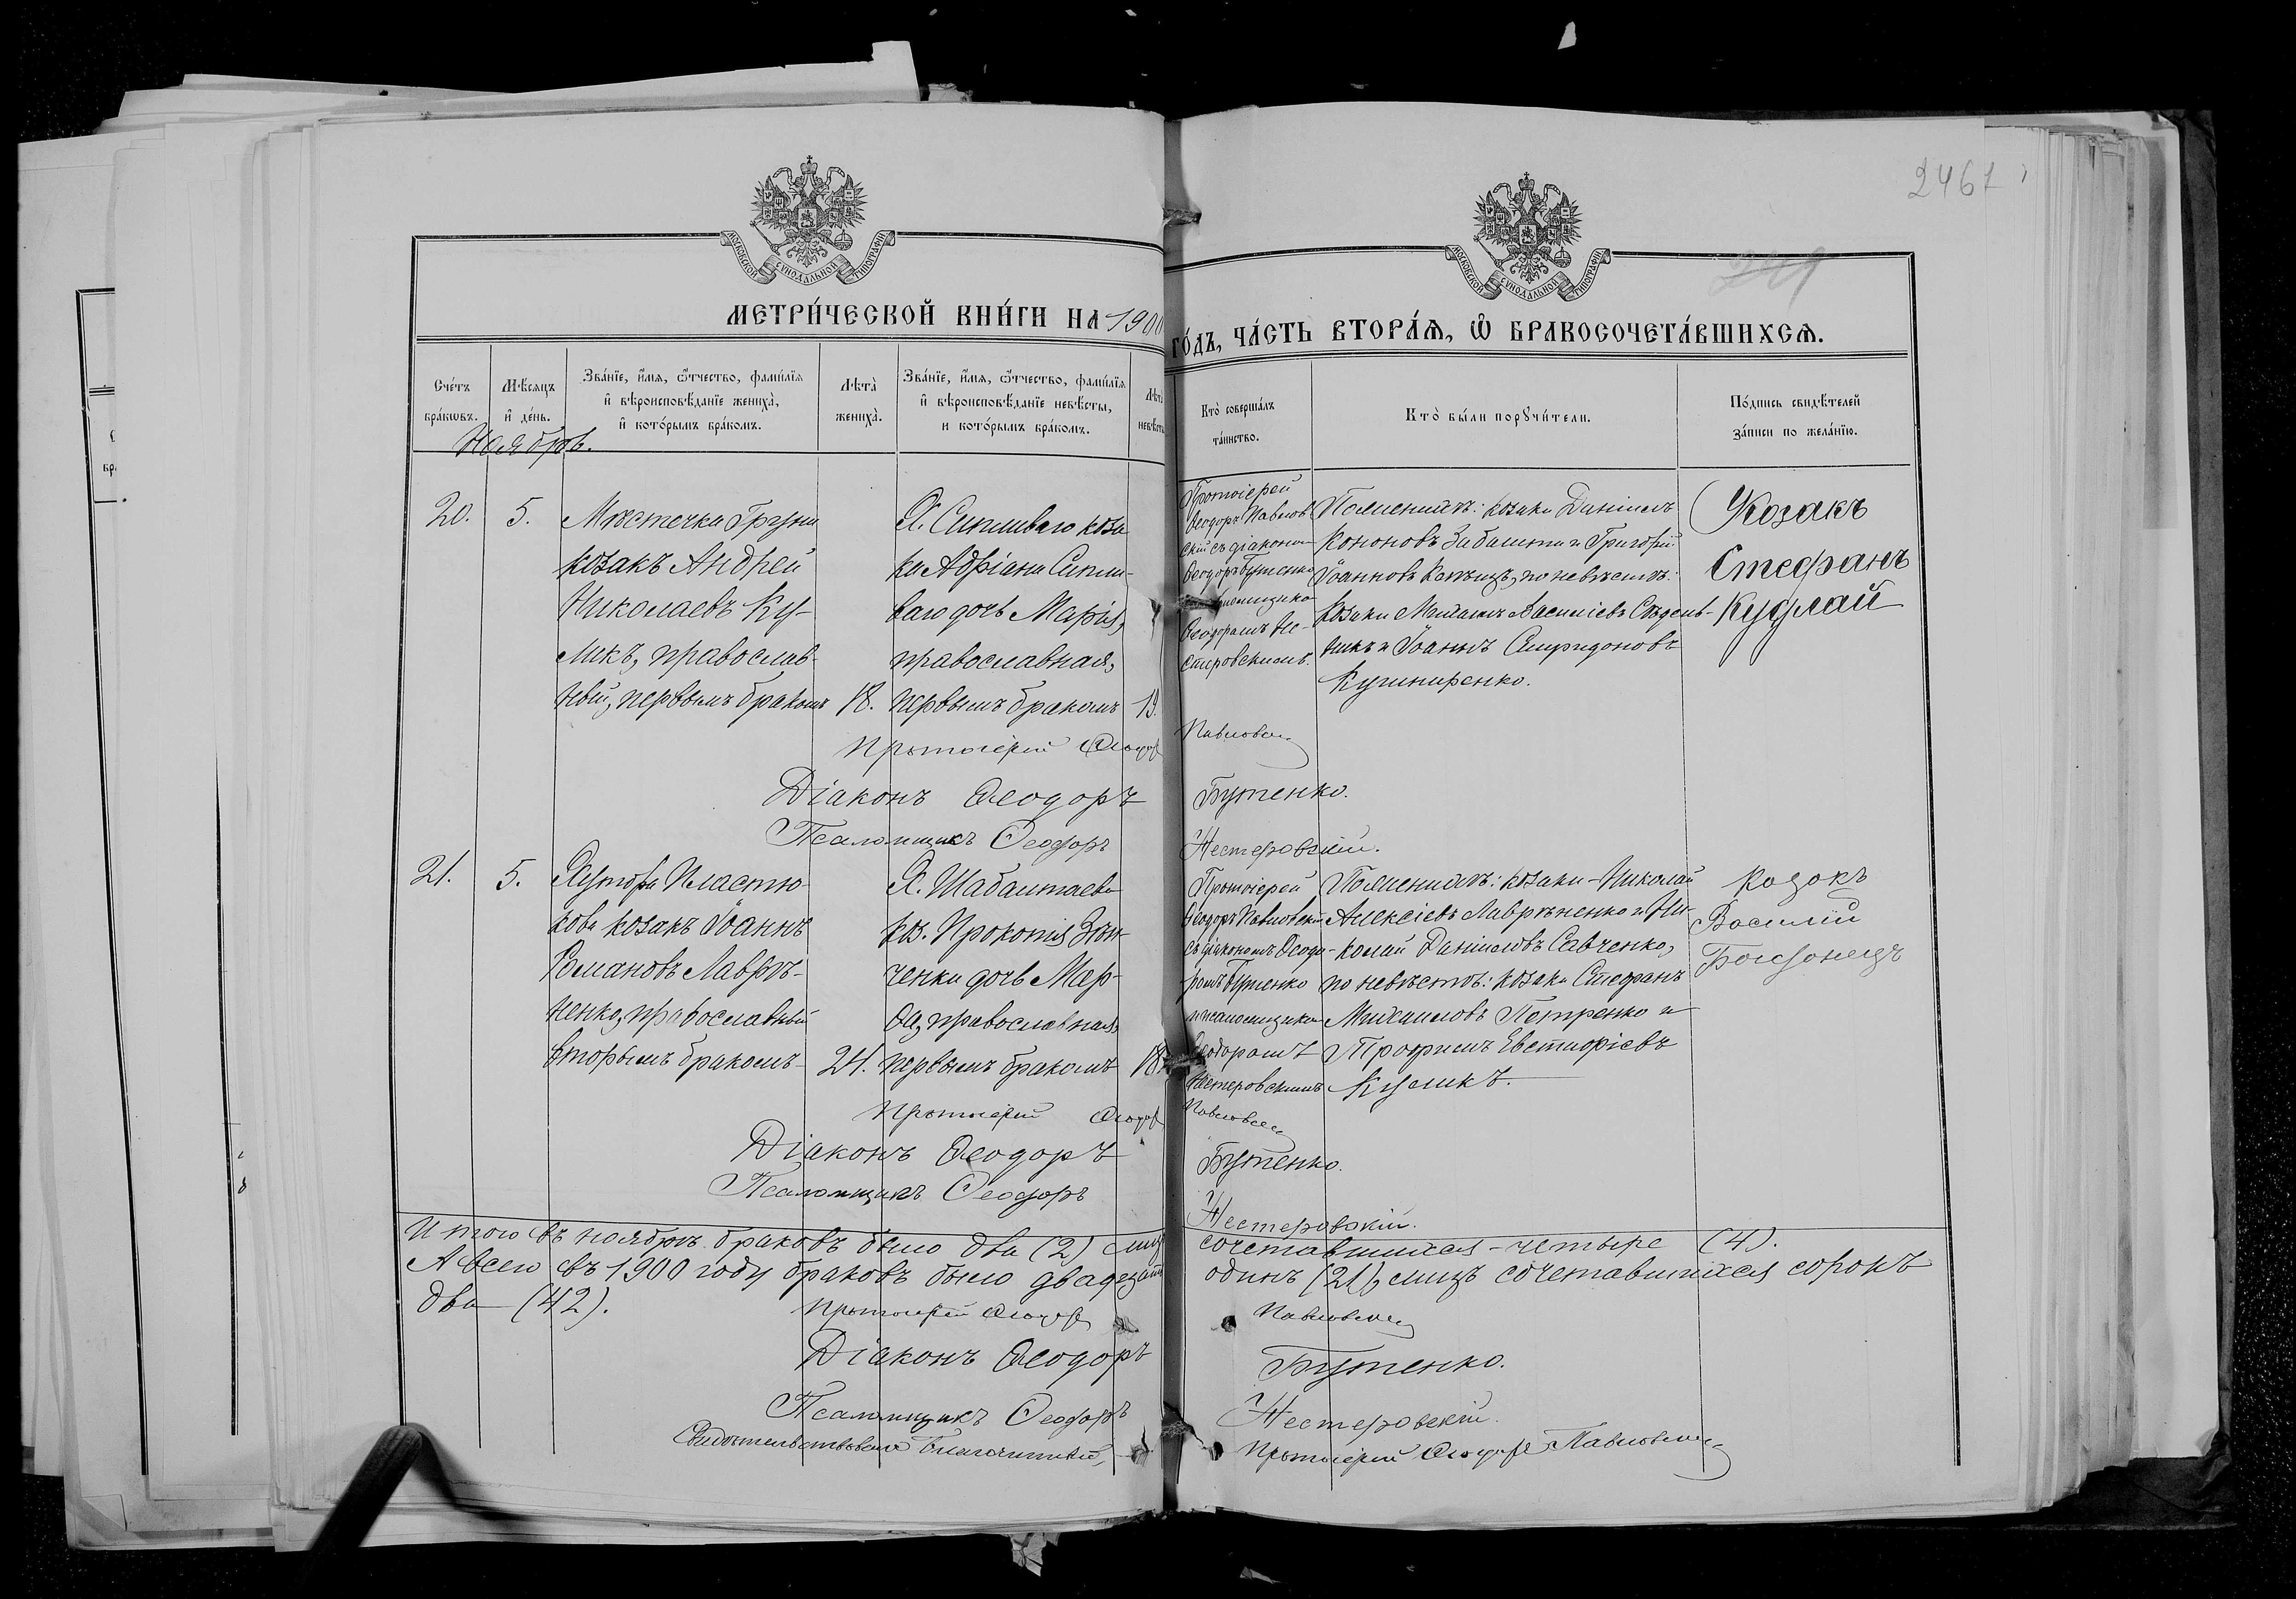 2461
МОСКОВСКОЙ СѴНОДАЛЬНОЙ ТИПОГРАФІИ
МОСКОВСКОЙ СѴНОДАЛЬНОЙ ТИПОГРАФІИ
МЕТРИ́ЧЕСКОЙ КНИ́ГИ НА 1900
ГО́ДЪ, ЧА́СТЬ ВТОРА́Ѧ, Ѽ БРАКОСОЧЕТА́ВШИХСѦ.
Сче́тъ бра́кѡвъ.
Мѣ́сяцъ и҆ де́нь.
Зва́нїе, и҆́мѧ, ѻ҆́тчество, фамилїѧ и҆ вѣроисповѣ́данїе жениха̀, и҆ кото́рымъ бра́комъ.
Лѣта̀ жениха̀.
Зва́нїе, и҆́мѧ, ѻ҆́тчество, фамилїѧ и҆ вѣроисповѣ́данїе невѣ́сты, и кото́рымъ бра́комъ.
Лѣта̀ невѣст
Кто̀ соверша́лъ та́инство.
Кто̀ бы́ли порꙋчи́тели.
По́дпись свидѣ́телей за́писи по жела́нїю.
Ноябрь.
20.
5.
Мѣстечка Груни
козакъ Андрей
Николаевъ Ку-
ликъ, православ-
ный, первымъ бракомъ
18.
Х. Сипливаго коза
ка Адріана Сипли-
ваго дочь Марія,
православная,
первымъ бракомъ
19.
Протоіерей
Ѳеодоръ Павлов
скій съ діакономъ
Ѳеодоръ Бутенко
Ѳеодоромъ Не-
стеровскимъ.
По женихѣ: козаки Даніилъ
Кононовъ Забаштa и Григорій
Іоанновъ по невѣстѣ:
козаки Михаилъ Василіевъ
никъ и Іоаннъ Спиридоновъ
Кушниренко.
Козакъ
Стефанъ
Кудлай
Протоіерей Ѳеодор Павловскі
Діаконъ Ѳеодоръ Бутенко.
Псаломщикъ Ѳеодоръ Нестеровскій.
21.
5.
Хутора Пластю-
кова козакъ Іоаннъ
Романовъ Лаврѣ-
ненко, православный
вторымъ бракомъ
24.
Х. Шабалтаева
коз. Прокопія Зѣн-
ченки дочь Мар-
ѳа, православная,
первымъ бракомъ
18.
Протоіерей
Ѳеодоръ Павловскій
съ діакономъ Ѳеодо-
ромъ Бутенко
и псаломщикомъ
Ѳеодоромъ
Нестеровскимъ
По женихѣ: козаки - Николай
Алексіевъ Лаврѣненко и Ни-
колай Даніиловъ Савченко,
по невѣстѣ: козаки Стефанъ
Михаиловъ Петренко и
Трофимъ Евстафіевъ
Куликъ.
Козокъ
Василій
Протоіерей Ѳеодор Павловскі
Діаконъ Ѳеодоръ Бутенко.
Псаломщикъ Ѳеодоръ Нестеровскій.
Итого въ ноябрѣ браковъ было два (2) лицъ сочетавшихся - четыре (4).
А всего въ 1900 году браковъ было двадцать одинъ (21), лицъ сочетавшихся сорокъ
два (42).
Протоіерей Ѳеодор Павловскі
Діаконъ Ѳеодоръ Бутенко.
Псаломщикъ Ѳеодоръ Нестеровскій.
Свидѣтельствовалъ Благочинный, Протоіерей Ѳеодоръ Павловскі